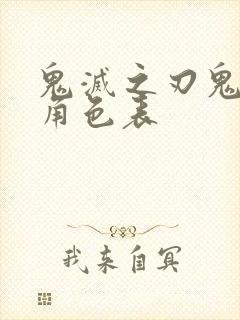 鬼滅之刃鬼
角色表
我来自冥